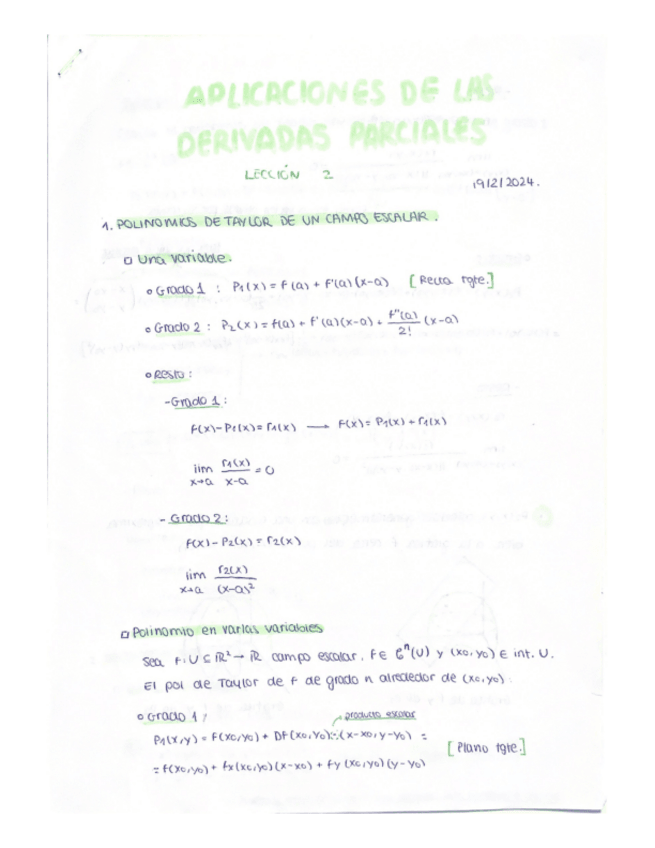 APLICACIONES DE LAS
DERIVADAS PARCIALES
LECCIÓN 2
19/2/2024.
1. POLINOMIOS DE TAYLOR DE UN CAMPO ESCALAR.
□ Una variable.
∘ Grado 1 : P₁(x) = f(a) + f'(a)(x-a) [Recta tgte.]
∘ Grado 2 : P₂(x) = f(a) + f'(a)(x-a) + f''(a)/2! (x-a)
∘ Resto :
- Grado 1 :
f(x) - P₁(x) = r₁(x) → f(x) = P₁(x) + r₁(x)
lim x→a r₁(x)/(x-a) = 0
- Grado 2 :
f(x) - P₂(x) = r₂(x)
lim x→a r₂(x)/(x-a)²
□ Polinomio en varias variables
Sea f: U ⊆ ℝ² → ℝ campo escalar, f ∈ 𝒞ⁿ(U) y (x₀,y₀) ∈ int. U.
El pol de Taylor de f de grado n alrededor de (x₀,y₀) :
∘ Grado 1 ;
producto escalar
P₁(x,y) = f(x₀,y₀) + Df(x₀,y₀)·(x-x₀, y-y₀) =
[Plano tgte.]
= f(x₀,y₀) + fx(x₀,y₀)(x-x₀) + fy(x₀,y₀)(y-y₀)